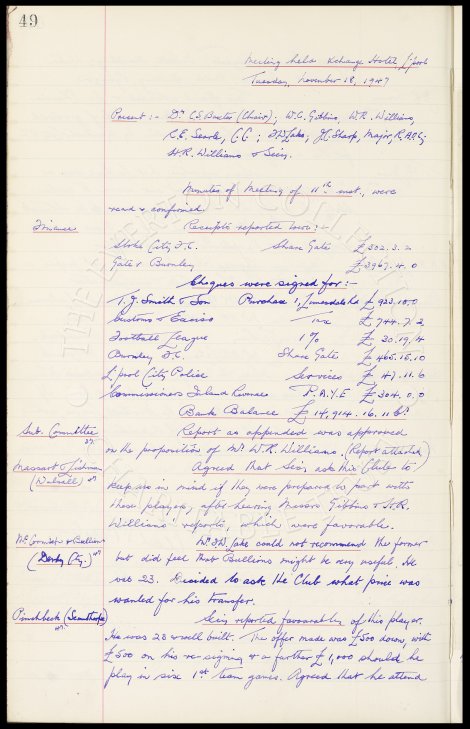 49
Meeting held Xchange Hotel L/pool
Tuesday, November 18, 1947
Present :- Dr. C.S. Baxter (Chair); W.C. Gibbins, W.R. Williams,
C.E. Searle, C.C.; D.W. Lake, J.C. Sharp, Major, R.A.C.;
H.R. Williams & Secy.
Minutes of Meeting of 11th inst., were
read & confirmed.
Finance
Receipts reported were:-
Stoke City F.C. Share Gate £302.3.2
Gate v Burnley £3967.4.0
Cheques were signed for:-
T.J. Smith & Son Purchase 1, £923.10.0
Customs & Excise Tax £744.7.2
Football League 1% £30.19.4
Burnley F.C. Share Gate £465.15.10
L/pool City Police Services £47.11.6
Commissioners Inland Revenue P.A.Y.E £304.0.0
Bank Balance £14,914.16.11
Sub. Committee
Report as appended was approved
on the proposition of Mr W.R. Williams. (Report attached)
Massart & Lishman
(Walsall)
Agreed that Secy. ask this Club to
keep us in mind if they were prepared to part with
these players, after hearing Messrs Gibbins & H.R.
Williams' reports, which were favorable.
McCormick & Bullions
(Derby Cty.)
Mr D.W. Lake could not recommend the former
but did feel that Bullions might be very useful. He
was 23. Decided to ask the Club what price was
wanted for his transfer.
Pinchbeck (Scunthorpe)
Secy reported favorably of this player.
He was 23 & well built. The offer made was £500 down, with
£500 on his re-signing & a further £1,000 should he
play in six 1st team games. Agreed that he attend
THE EVERTON COLLECTION